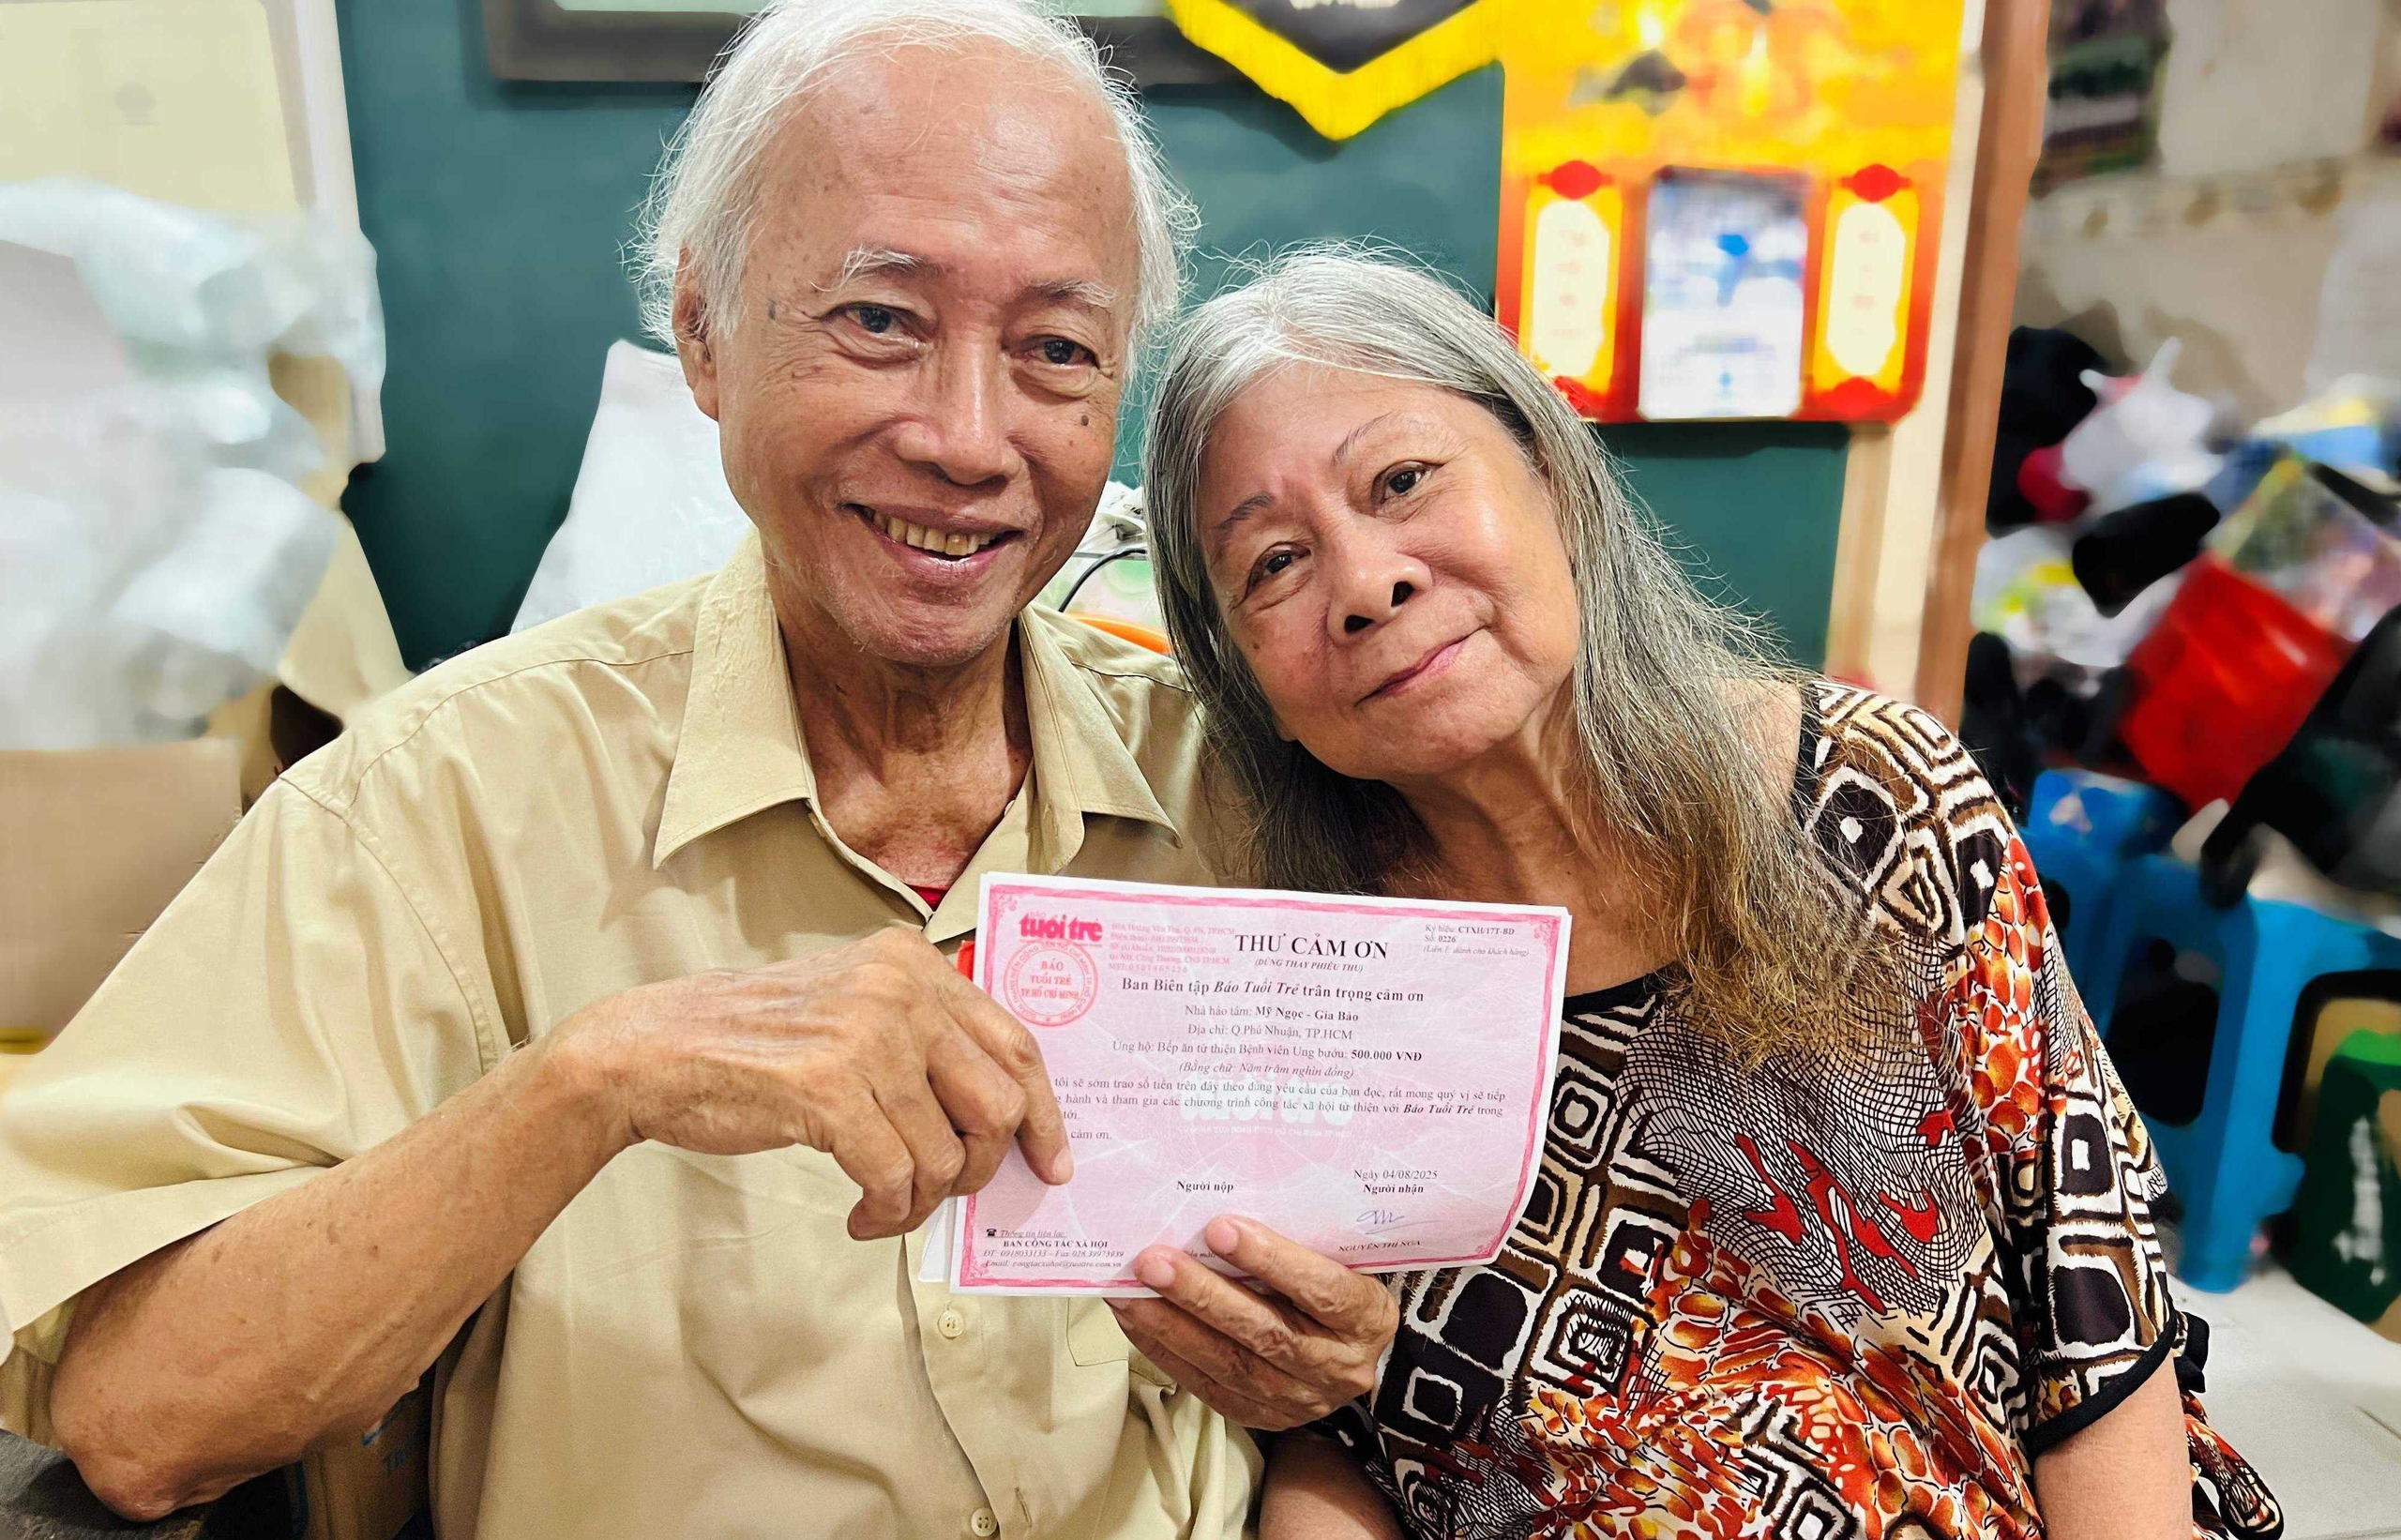 tuổi trẻ
60A Hoàng Văn Thụ, Q. PN, TP.HCM
BÁO
TUỔI TRẺ
TP.HỒ CHÍ MINH
THƯ CẢM ƠN
(DÙNG THAY PHIẾU THU)
Ký hiệu: CTXH/17T-BD
Số: 0226
(Liên 1: dành cho khách hàng)
Ban Biên tập Báo Tuổi Trẻ trân trọng cảm ơn
Nhà hảo tâm: Mỹ Ngọc - Gia Bảo
Địa chỉ: Q.Phú Nhuận, TP.HCM
Ủng hộ: Bếp ăn từ thiện Bệnh viện Ung bướu: 500.000 VNĐ
(Bằng chữ: Năm trăm nghìn đồng)
tôi sẽ sớm trao số tiền trên đây theo đúng yêu cầu của bạn đọc, rất mong quý vị sẽ tiếp
hành và tham gia các chương trình công tác xã hội từ thiện với Báo Tuổi Trẻ trong
tới.
cảm ơn.
Ngày 04/08/2025
Người nộp
Người nhận
NGUYỄN THỊ NGA
Thông tin liên lạc:
BAN CÔNG TÁC XÃ HỘI
ĐT: 0918033133 - Fax 028.39973939
Email: congtacxahoi@tuoitre.com.vn